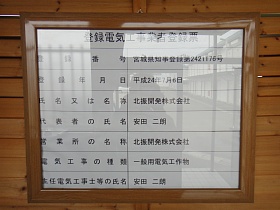 登録電気工事業者登録票
登録番号 宮城県知事登録第242176号
登録年月日 平成24年7月6日
氏名又は名称 北振開発株式会社
代表者の氏名 安田 二朗
営業所の名称 北振開発株式会社
電気工事の種類 一般用電気工作物
主任電気工事士等の氏名 安田 二朗